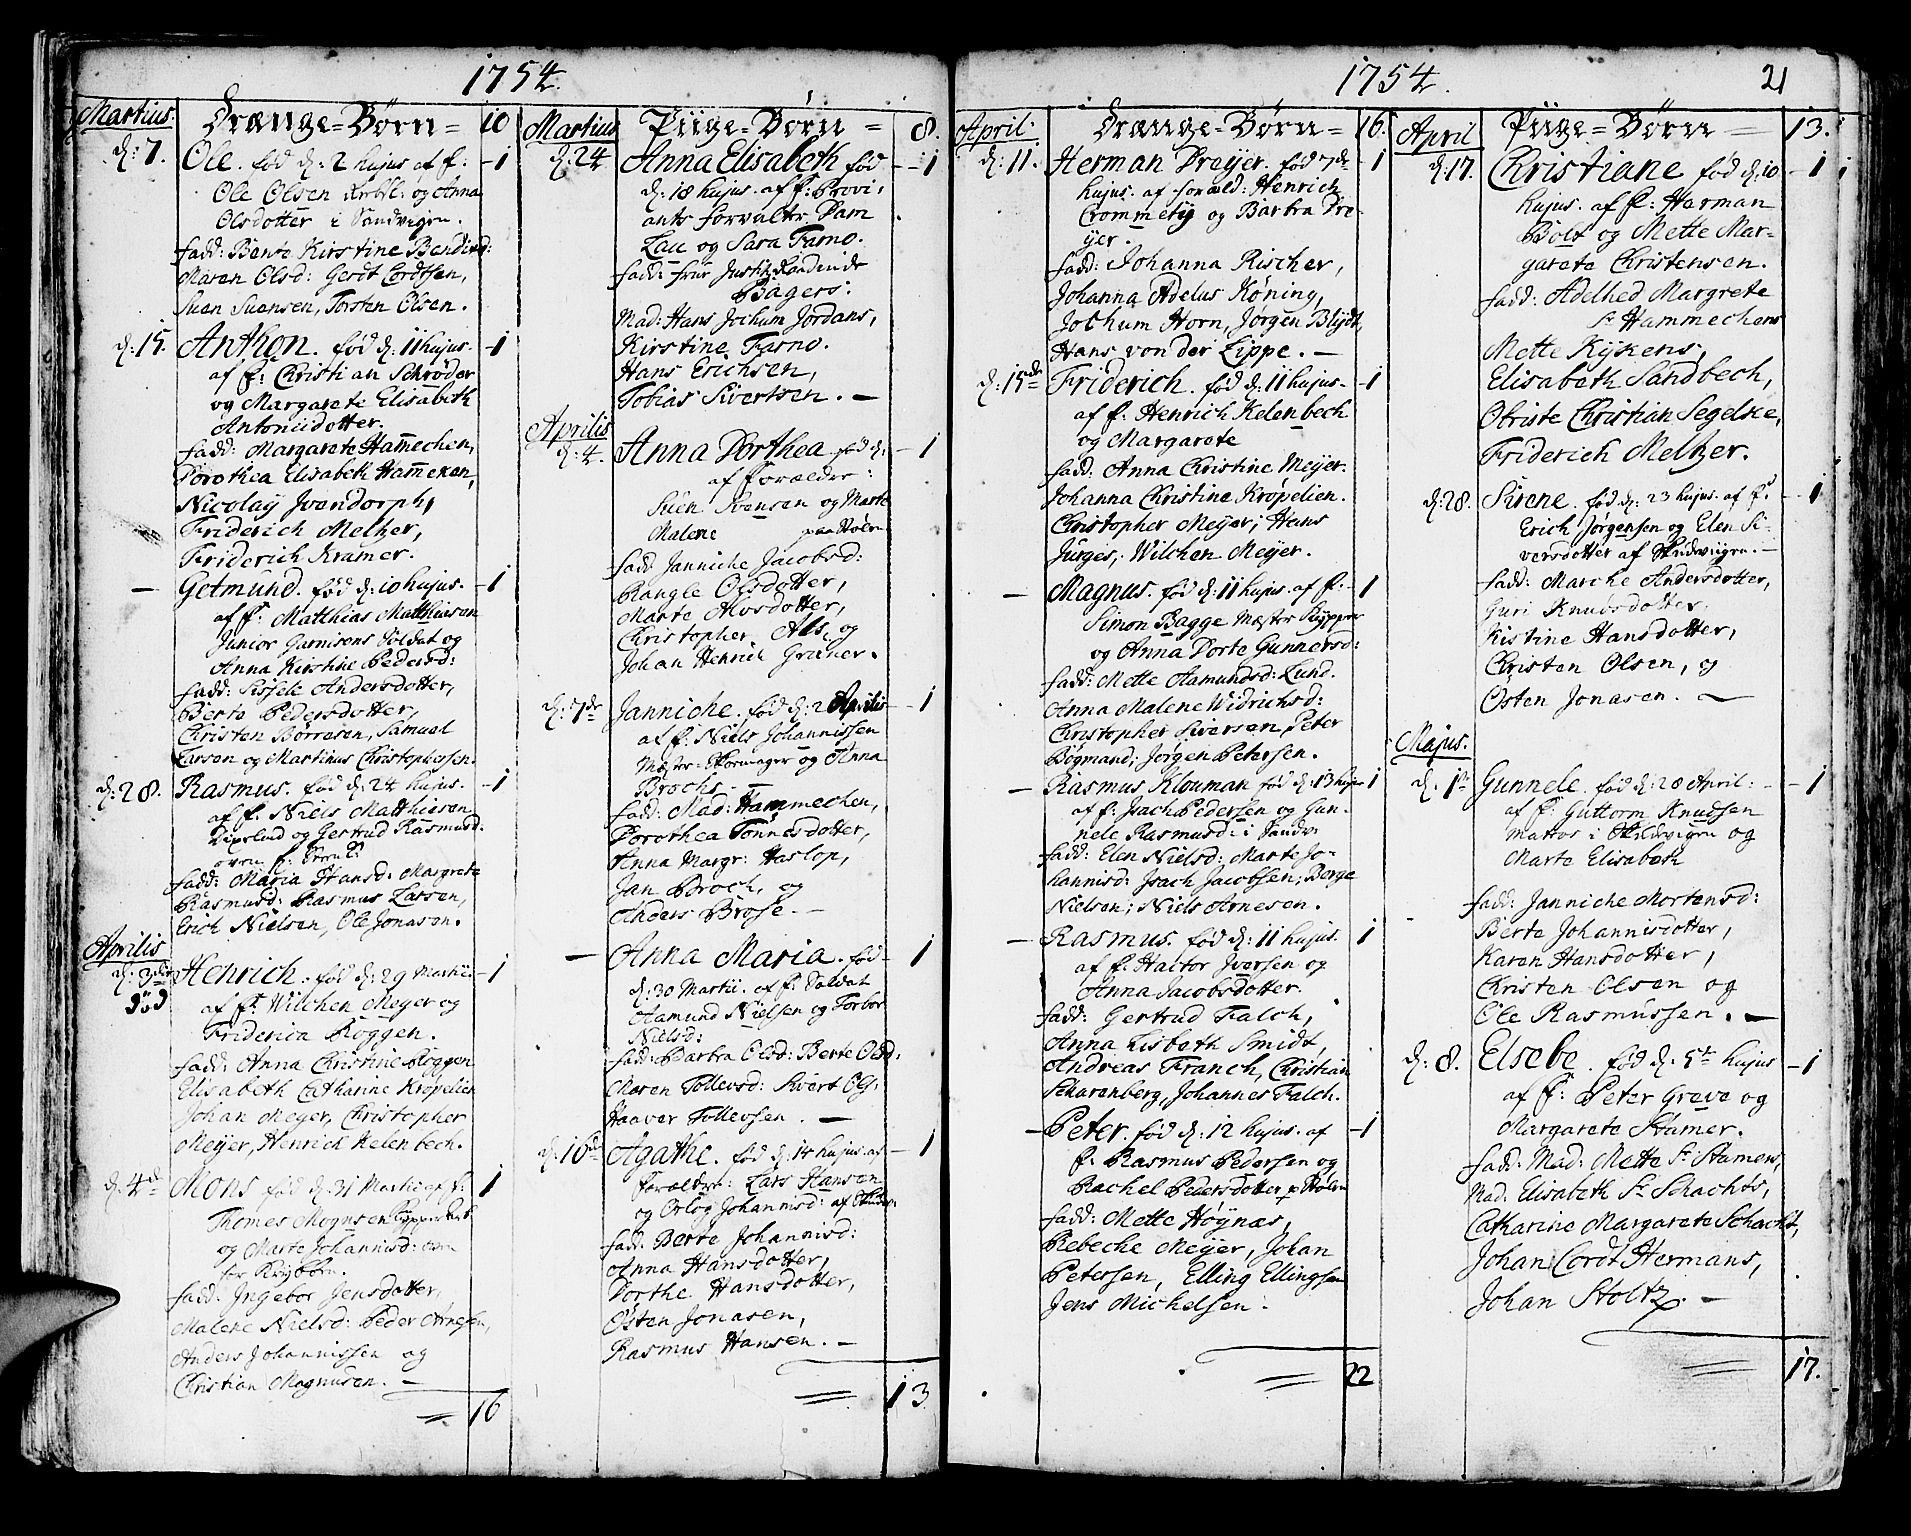 1754.
Martius. Drænge=Børn= 10
d: 7. Ole. fød d: 2 hujus af f. -1
Ole Olsen Arbfl: og Anna
Olsdotter i Sandvigen.
fadd: Bente Kirstine Bendixd:
Maren Olsd: Gerdt Cordtsen,
Suen Suensen, Torsten Olsen.
d: 15. Anthon. fød d: 11 hujus. -1
af f: Christian Schrøder
og Margarete Elisabeth
Antonidotter.
fadd: Margarete Ham̄echen,
Dorothea Elisabeth Ham̄eken,
Nicolaÿ Jvendorph,
Friderich Meltzer,
Friderich Kramer.
— Getmund. fød d: 10 hujus. -1
af f: Matthias Matthiesen
Junior Garnisons Soldat og
Anna Kirstine Pedersd:
fadd: Sissele Andersdotter,
Berte Pedersdotter,
Christen Børresen, Samuel
Larsen og Martinus Christophersen.
d: 28. Rasmus. fød d: 24 hujus. -1
af f. Niels Matthiesen
og Gertrud Rasmusd.
oven f:
fadd: Maria Hansd: Margrete
Rasmusd: Rasmus Larsen,
Erich Nielsen, Ole Jonasen.
Aprilis
d: 3die Henrich. fød d: 29 Martii. -1
død af f: Wilchen Meyer og
Friderica Roggen.
fadd: Anna Christine Roggen
Elisabeth Catharine Kropelien
Johan Meyer, Christopher
Meÿer, Henrich Kelenbech.
d: 4de Mons fød d: 31 Martii af f. 1
Thomes Mognsen
og Marte Johannisd:
for
fadd: Ingebor Jensdotter,
Malene Nielsd: Peder Arnesen,
Anders Johannissen og
Christian Magnusen. —
= 16
Martius Piige=Børn = 8.
d: 24 Anna Elisabeth fød -1
d: 18 hujus. af f: Provi,
ants forvaltr Dam
Lau og Sara Farno.
fadd: frur Justitz Raadinde
Bagers:
Mad: Hans Jochum Jordans,
Kirstine Farno.
Hans Erichsen,
Tobias Sivertsen. —
Aprilis
d: 4. Anna Dorthea fød d: -1
af Forældre:
Suen Svensen og Marte
Malene paa
fadd Janniche Jacobsd:
Rangle Olsdotter,
Marte Alvsdotter,
Christopher Als, og
Johan Henrich Grüner.
d: 7de Janniche. fød d: 2 Aprilis -1
af f. Niels Johannissen
Mester Skomager og Anna
Brochs —
fadd: Mad: Ham̄echen,
Dorothea Tonnesdotter,
Anna Margr: Haslop,
Jan Broch, og
Anders Brose. —
— Anna Maria. fød- 1
d: 30 Martii. af f. Soldat
Aamund Nielsen og Torbor
Nielsd:
fadd: Barbra Olsd: Berte Olsd:
Maren Tollevsd: Sivert Ols:
Haaver Tollevsen. —
d: 16de Agathe. fød d: 14 hujus. af -1
forældre: Lars Hansen
og Orlog Johannisd: af
fadd: Berte Johannisd:
Anna Hansdotter,
Dorthe Hansdotter,
Østen Jonasen,
Rasmus Hansen. —
= 13.
1754. 21
April: Drænge=Børn= 16.
d: 11. Herman Dreyer. fød 7de 1
hujus. af foræld: Henrich
Crommetÿ og Barbra Dre-
yer.
fadd: Johanna Rischer,
Johanna Adelus Køning,
Jochum Horn, Jørgen Blydt,
Hans von der Lippe. —
d: 15de Friderich. fød d: 11 hujus. -1
af f: Henrich Kelenbech
og Margarete
fadd: Anna Christine Meyer.
Johanna Christine Kropelien.
Christopher Meyer; Hans
Jürges, Wilchen Meyer.
— Magnus. fød d: 11 hujus. af f: 1
Simon Bagge Mæster Kypper
og Anna Dorte Gunnersd:
fadd: Mette Aamundsd: Lund.
Anna Malene Widrichsd:
Christopher Siversen, Peter
Bøgmand; Jørgen Petersen.
— Rasmus Klouman fød d: 13 hujus 1
af f: Isach Pedersen og Gun-
nele Rasmusd: i Sandv:
fadd: Elen Nielsd: Marte Jo-
hannisd: Jsach Jacobsen; Berge
Nielsen; Niels Arnesen.
— Rasmus. fød d: 11 hujus. 1
af f: Haltor Iversen og
Anna Jacobsdotter.
fadd: Gertrud Falch,
Anna Lisbeth Smidt,
Andreas Franch, Christian
Scharenberg, Johannes Falch.
— Peter. fød d: 12 hujus. af -1
f. Rasmus Pedersen og
Rachel Pedersdotter p
fadd: Mette Høynæs,
Rebeche Meÿer, Johan
Petersen, Elling Ellingsen
Jens Michelsen.
= 22
April Piige=Børn — 13.
d: 17. Christiane fød d: 10 1
hujus. af f: Herman
Bolt og Mette Mar-
garete Christensen.
fadd: Adelhed Margrete
Sr Hammechens
Mette Kÿkens,
Elisabeth Sandbech,
Obriste Christian Segelcke,
Friderich Meltzer.
d: 28. Sirene. fød d: 23 hujus. af f. -1
Erich Jørgensen og Elen Si-
versdotter af Sandviigen. —
fadd: Marche Andersdotter,
Guri Knudsdotter.
Kistine Hansdotter,
Christen Olsen, og
Østen Jonasen. —
Majus.
d: 1te Gunnele. fød d: 28 April: -1
af f: Guttorm Knudsen
i Sandvigen og
Marte Elisabeth
fadd: Janniche Mortensd:
Berte Johannisdotter,
Karen Hansdotter,
Christen Olsen og
Ole Rasmussen. —
d: 8. Elsebe. fød d: 5te hujus -1
af f: Peter Greve og
Margarete Stamer.
fadd: Mad: Mette Sr Stamers,
Mad: Elisabeth Sr Schachts,
Catharine Margarete Schacht,
Johan Cordt Hermans,
Johan Stoltz. —
= 17.